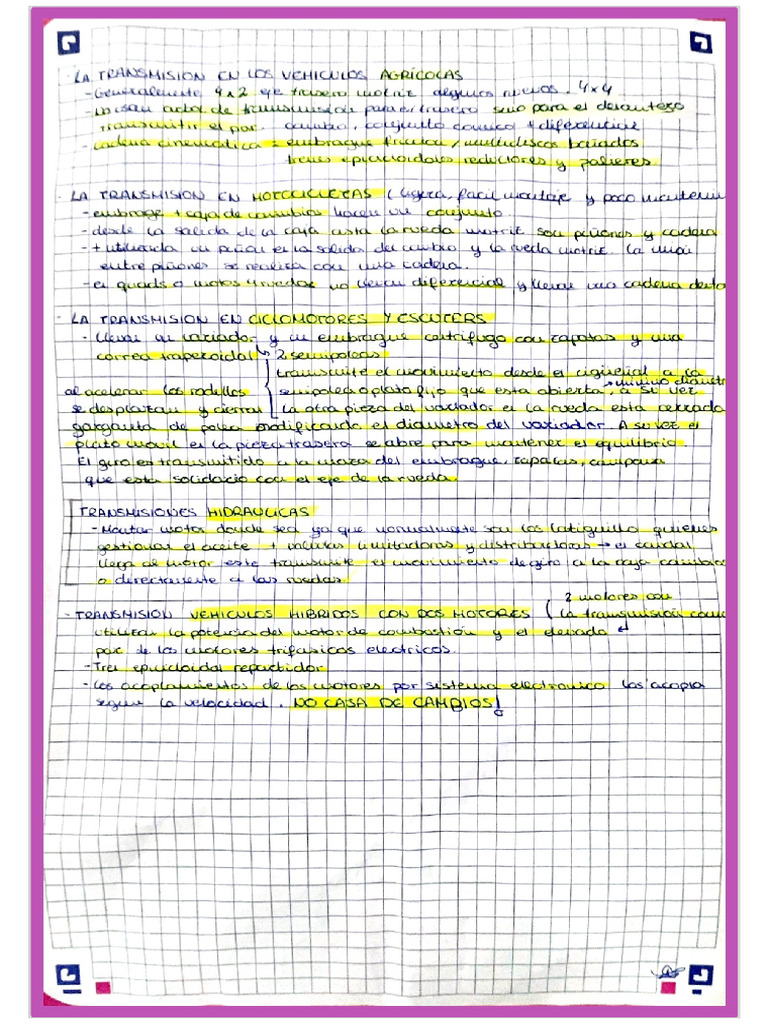 LA TRANSMISION EN LOS VEHICULOS AGRÍCOLAS
- Generalmente 4x2 eje trasero motriz algunos nuevos 4x4
no usan arbol de transmisión para el trasero sino para el delantero
transmitir el par. cambio, conjunto conico + diferencial
- cadena cinematica = embrague friccion / multidiscos bañados
trenes epicicloidales reductores y palieres.
- LA TRANSMISION EN MOTOCICLETAS (ligera, facil montaje y poco mantenim
- embrage + caja de cambios hacen un conjunto.
- desde la salida de la caja asta la rueda motriz son piñones y cadena
- + utilizada un piñon en la salida del cambio y la rueda motriz. La union
entre piñones se realiza con una cadena.
- en quads o motos 4 ruedas no llevan diferencial y llevan una cadena
- LA TRANSMISION EN CICLOMOTORES Y ESCUTERS
- Llevan un variador y un embrague centrifugo con zapatas y una
correa trapezoidal → 2 semipoleas
transmite el movimiento desde el cigüeñal a la
semipolea o plato fijo que esta abierta, a su vez → minimo diametr
la otra pieza del variador en la rueda esta cerrada
al acelerar los rodillos
se desplazan y cierran
garganta de polea modificando el diametro del variador. A su vez el
plato movil en la pieza trasera se abre para mantener el equilibrio.
El giro es transmitido a la maza del embrague, zapatas, campana
que esta solidario con el eje de la rueda.
TRANSMISIONES HIDRAULICAS
- Montar motor donde sea ya que normalmente son los latiguillo quienes
gestionan el aceite + valvulas limitadoras y distribuidoras → el caudal
llega de motor este transmite el movimiento de giro a la caja cambios
o directamente a las ruedas.
- TRANSMISION VEHICULOS HIBRIDOS CON DOS MOTORES ( 2 motores con
la transmisión
utilizan la potencia del motor de combustión y el elevado
par de los motores trifasicos electricos.
- Tren epicicloidal repartidor
- Los acoplamientos de los motores por sistema electronico los acopla
segun la velocidad. NO CAJA DE CAMBIOS!